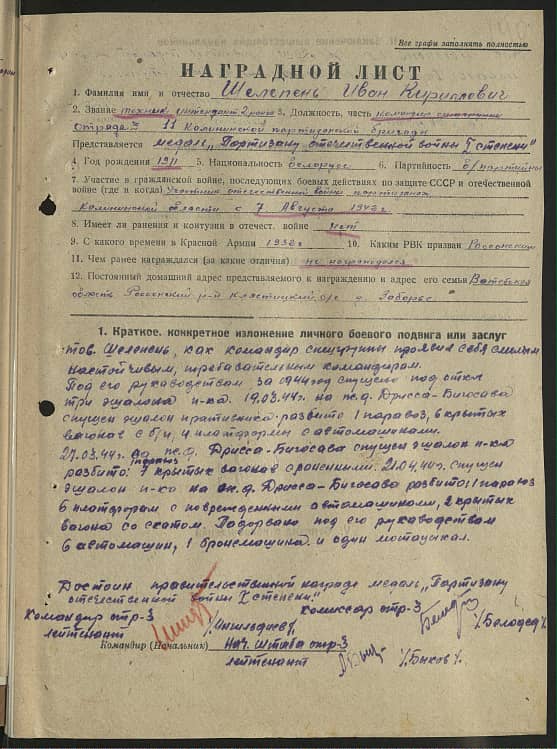 Все графы заполнять полностью
НАГРАДНОЙ ЛИСТ
1. Фамилия имя, и отчество Шелепень Иван Кириллович
2. Звание техник интендант 2 ранга 3. Должность, часть командир спецгруппы
отряда 3 11 Калининской партизанской бригады
Представляется медаль „Партизану отечественной войны I степени"
4. Год рождения 1911 5. Национальность белорус 6. Партийность б/партийн
7. Участие в гражданской войне, последующих боевых действиях по защите СССР и отечественной
войне (где и когда) Участник отечественной войны
Калининской области с 7 Августа 1942 г
8. Имеет ли ранения и контузии в отечест. войне нет
9. С какого времени в Красной Армии 1932 г 10. Каким РВК призван Россонским
11. Чем ранее награждался (за какие отличия) не награждался
12. Постоянный домашний адрес представляемого к награждению и адрес его семьи Витебская
область Россонский р-н Клястицкий с/с д. Заборье
1. Краткое, конкретное изложение личного боевого подвига или заслуг
тов. Шелепень, как командир спецгруппы проявил себя смелым
настойчивым, требовательным командиром.
Под его руководством за 1944 год спущено под откос
три эшалона п-ка. 19.03.44г. на ж.д. Дрисса-Бигосава
спущен эшалон противника разбито 1 паравоз, 6 крытых
вагонов с б/п, 4 платформы с автомашинами.
27.03.44г. на ж.д. Дрисса-Бигосава спущен эшалон п-ка
разбито: 1 паравоз 7 крытых вагонов с ранеными. 21.04.44г. спущен
эшалон п-ка на ж.д. Дрисса-Бигосава разбито: 1 паравоз
6 платформ с повреждеными автомашинами, 2 крытых
вагона со скотом. Подорвано под его руководством
6 автомашин, 1 бронемашина и один мотоцикал.
Достоин правительственной награде медаль „Партизану
отечественной войны I степени."
Командир отр-3 Комиссар отр-3
лейтенант
Командир (Начальник) Нач. штаба отр-3
лейтенант /Быков/